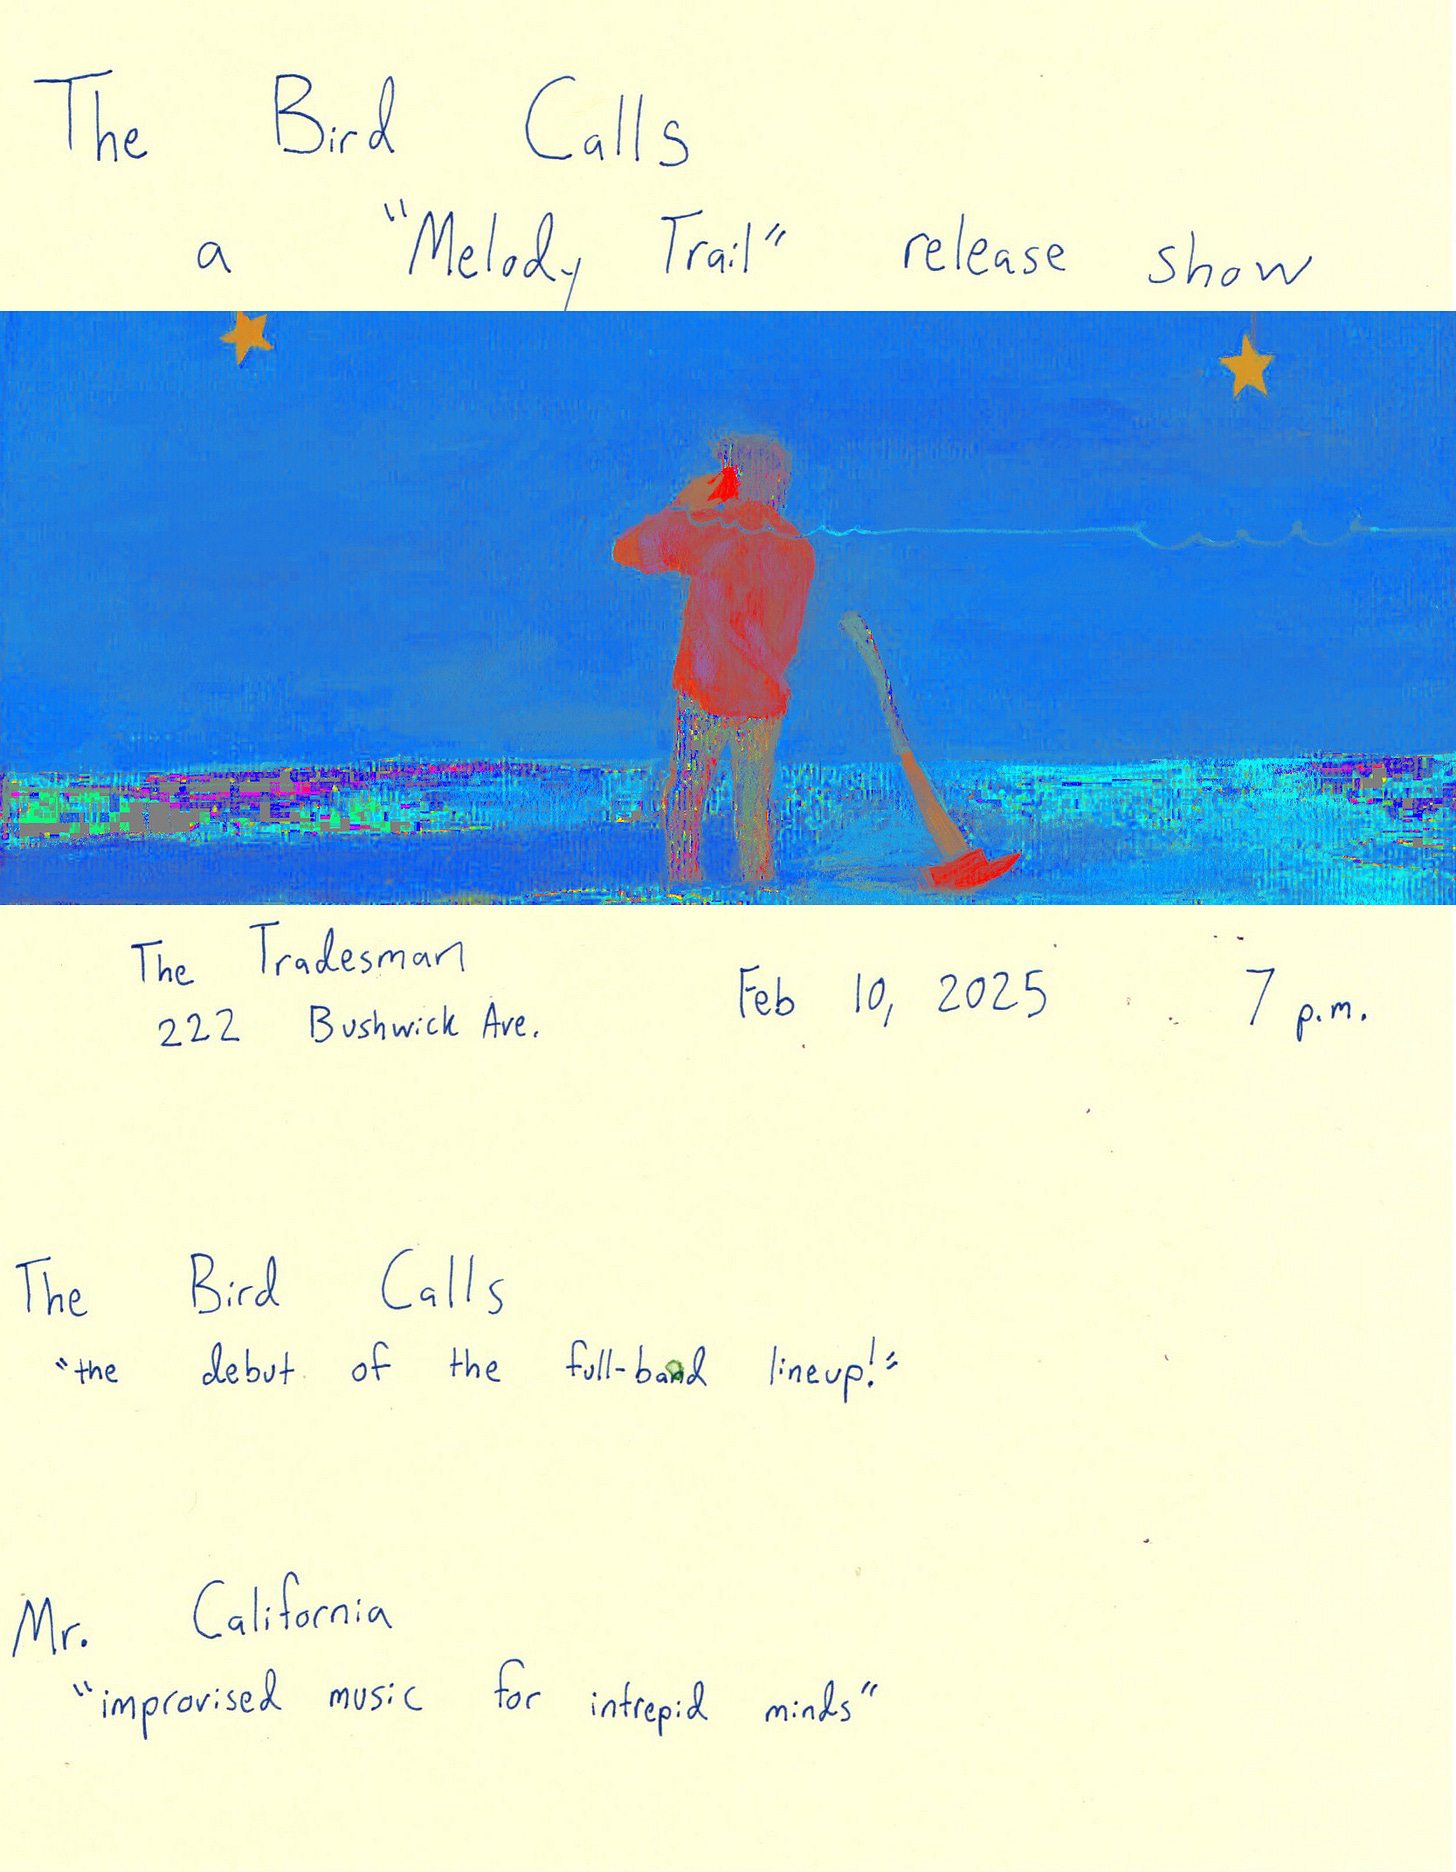 The Bird Calls
a "Melody Trail" release show
The Tradesman
222 Bushwick Ave.
Feb 10, 2025
7 p.m.
The Bird Calls
"the debut of the full-band lineup!"
Mr. California
"improvised music for intrepid minds"